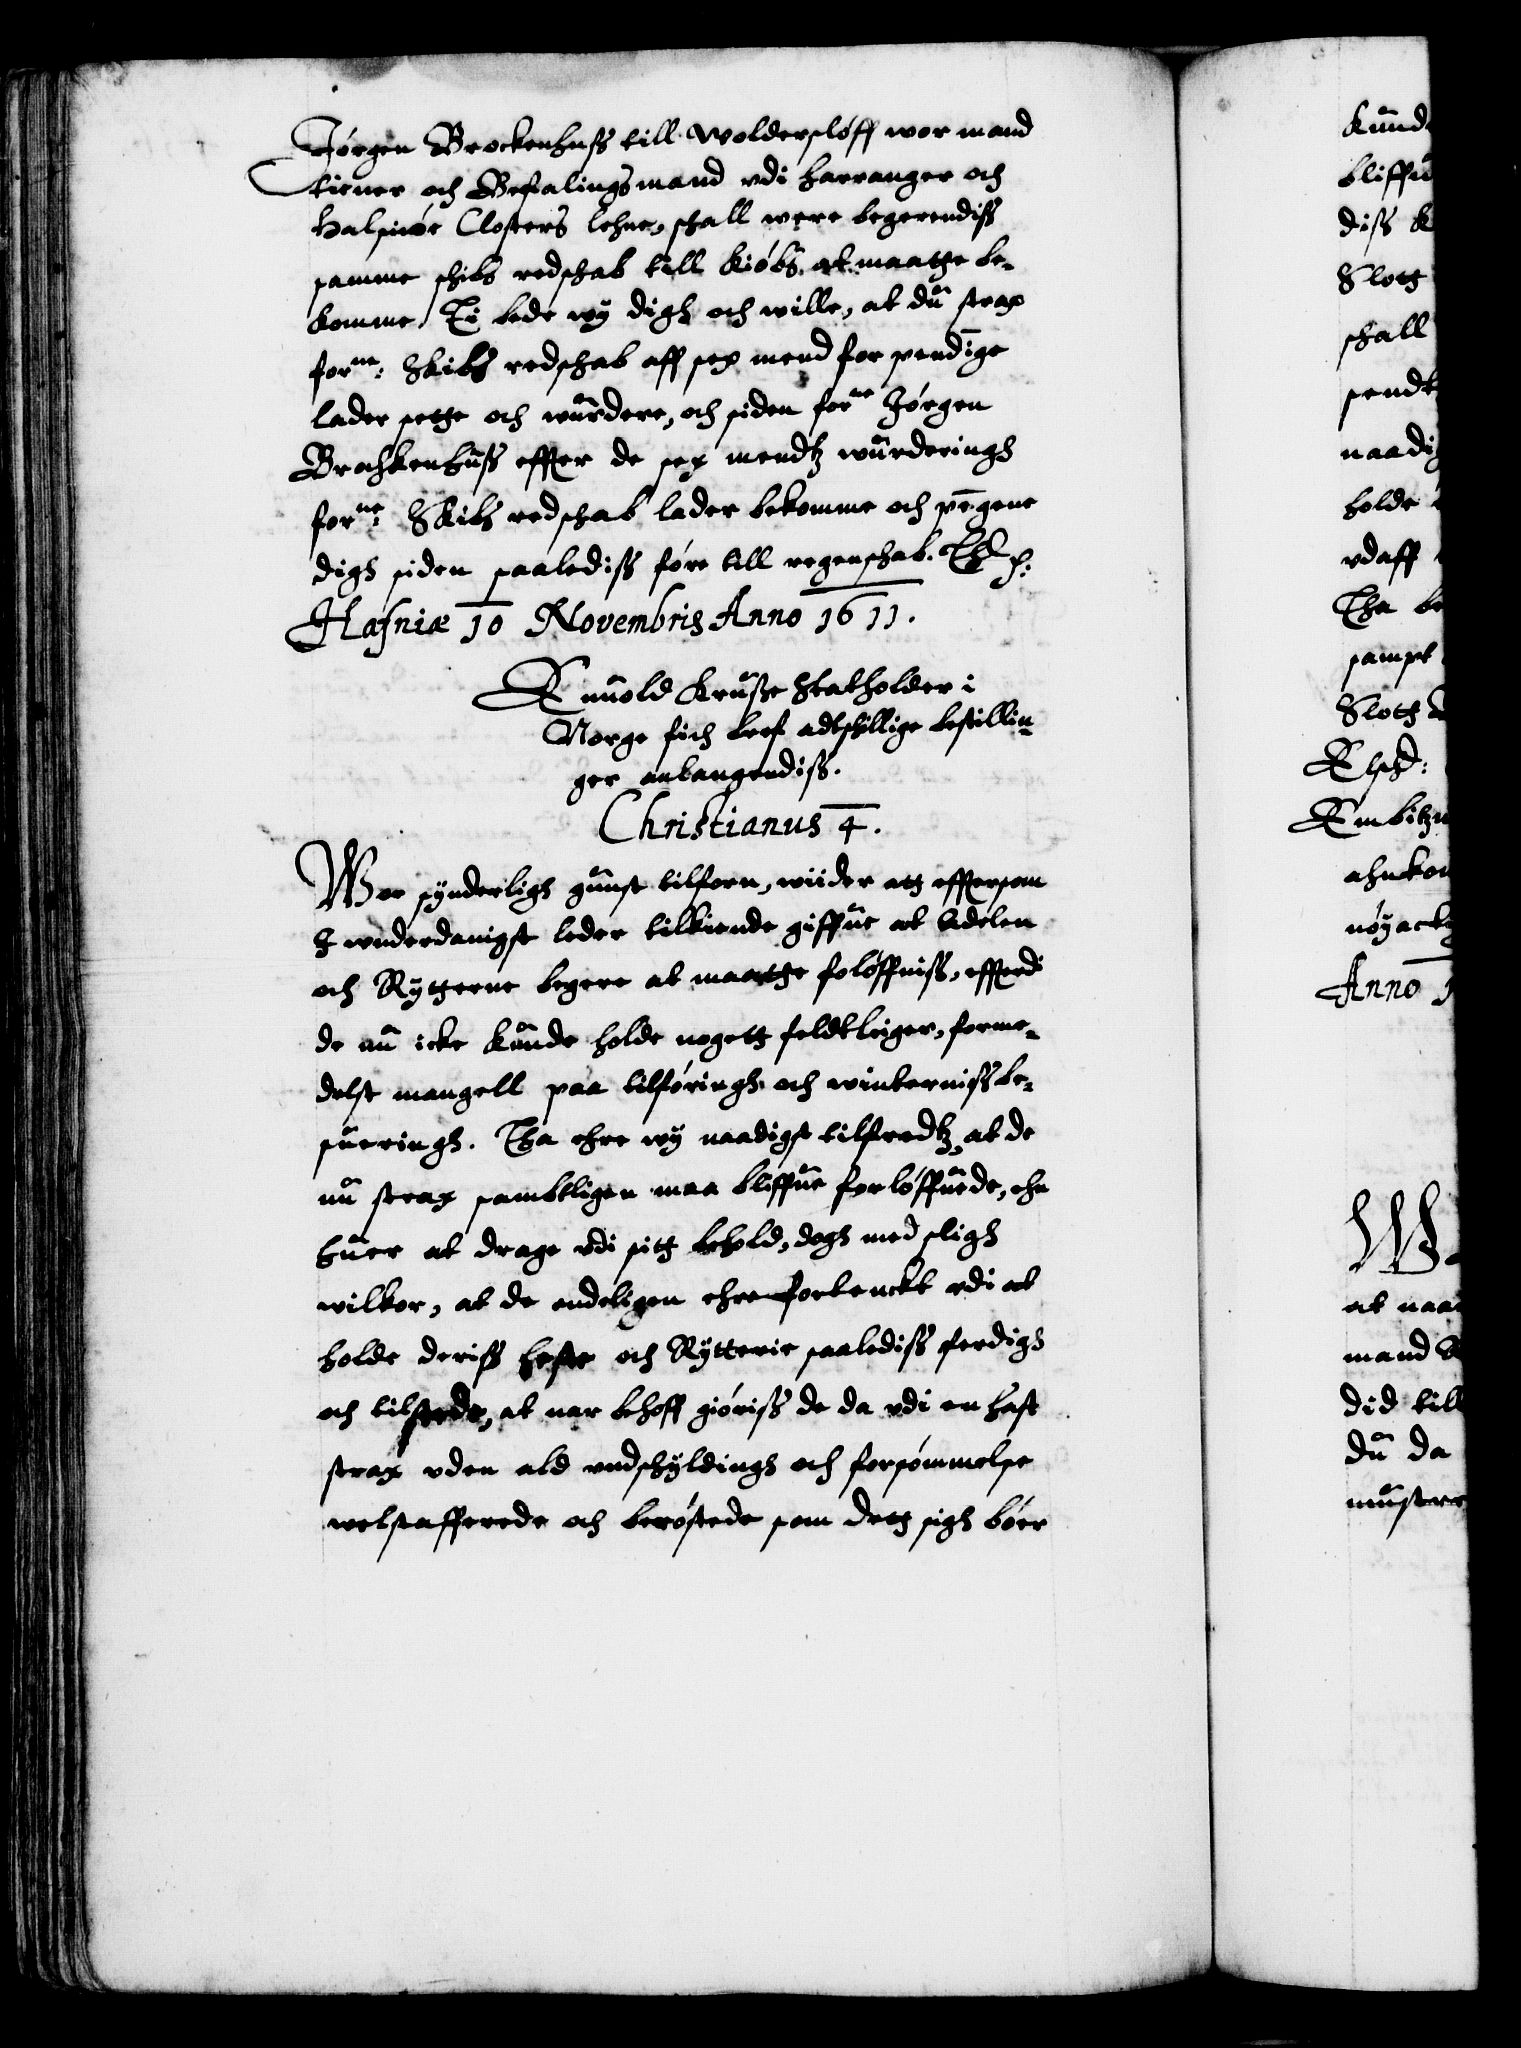 Jørgen Brockenhuss till Wolderslöff wor mand
tiener och Befalingsmand vdi Harranger och
Halsnöe Closters lehne, schall were begerendiss
samme schibs redschab till kiøbs at maatge be-
komme, Ti bede wy digh och wille, at dŭ strax
forne: Skibs redschab aff sex mend for pendinge
lader setge och wŭrdere, och siden forne Jørgen
Brockenhŭss effter de sex mendtz wŭrderingh
forne: Skibs redschab lader bekomme och pegene
digh siden saalediss føre till regenschab.
Hafniæ 10 Novembris Anno 1611.
Enuold Krŭsse Statholder i
Norge fich bref adtschillige bestillin-
ger anlangendiss.
Christianus 4.
Wor synderligh gŭnst tilforn, wiider atg effterssom
I wnderdanigst leder tilkiende giffŭe at Adelen
och Rytgerne begere at maatge foløffniss, effterdi
de nŭ icke kŭnde holde nogetg feldtleiger, forme-
delst mangell paa tilføringh och winterniss be-
sŭeringh. Tha ehre wy naadigst tilfredtz, at de
nŭ strax sambtligen maa bliffŭe forløffŭede, ehn
hŭer at drage vdi sitg behold, dogh med sligh
wilkor, at de endeligen ehre fortenckt vdi at
holde deriss heste och Rytterie saalediss ferdigh
och tilstede, at nar behoff giøriss de da vdi en hast
strax vden ald vndschyldingh och forsømmelse
welstafferede och berøstede som detg sigh bøer
kŭnd
bliffŭ
diss k
Slotg
schall
sendt
naadig
holde
vdaff
Tha be
sampt
Slotg
ahnkom
nøyactig
Anno 1
at naa
mand
did till
dŭ da
mŭstre